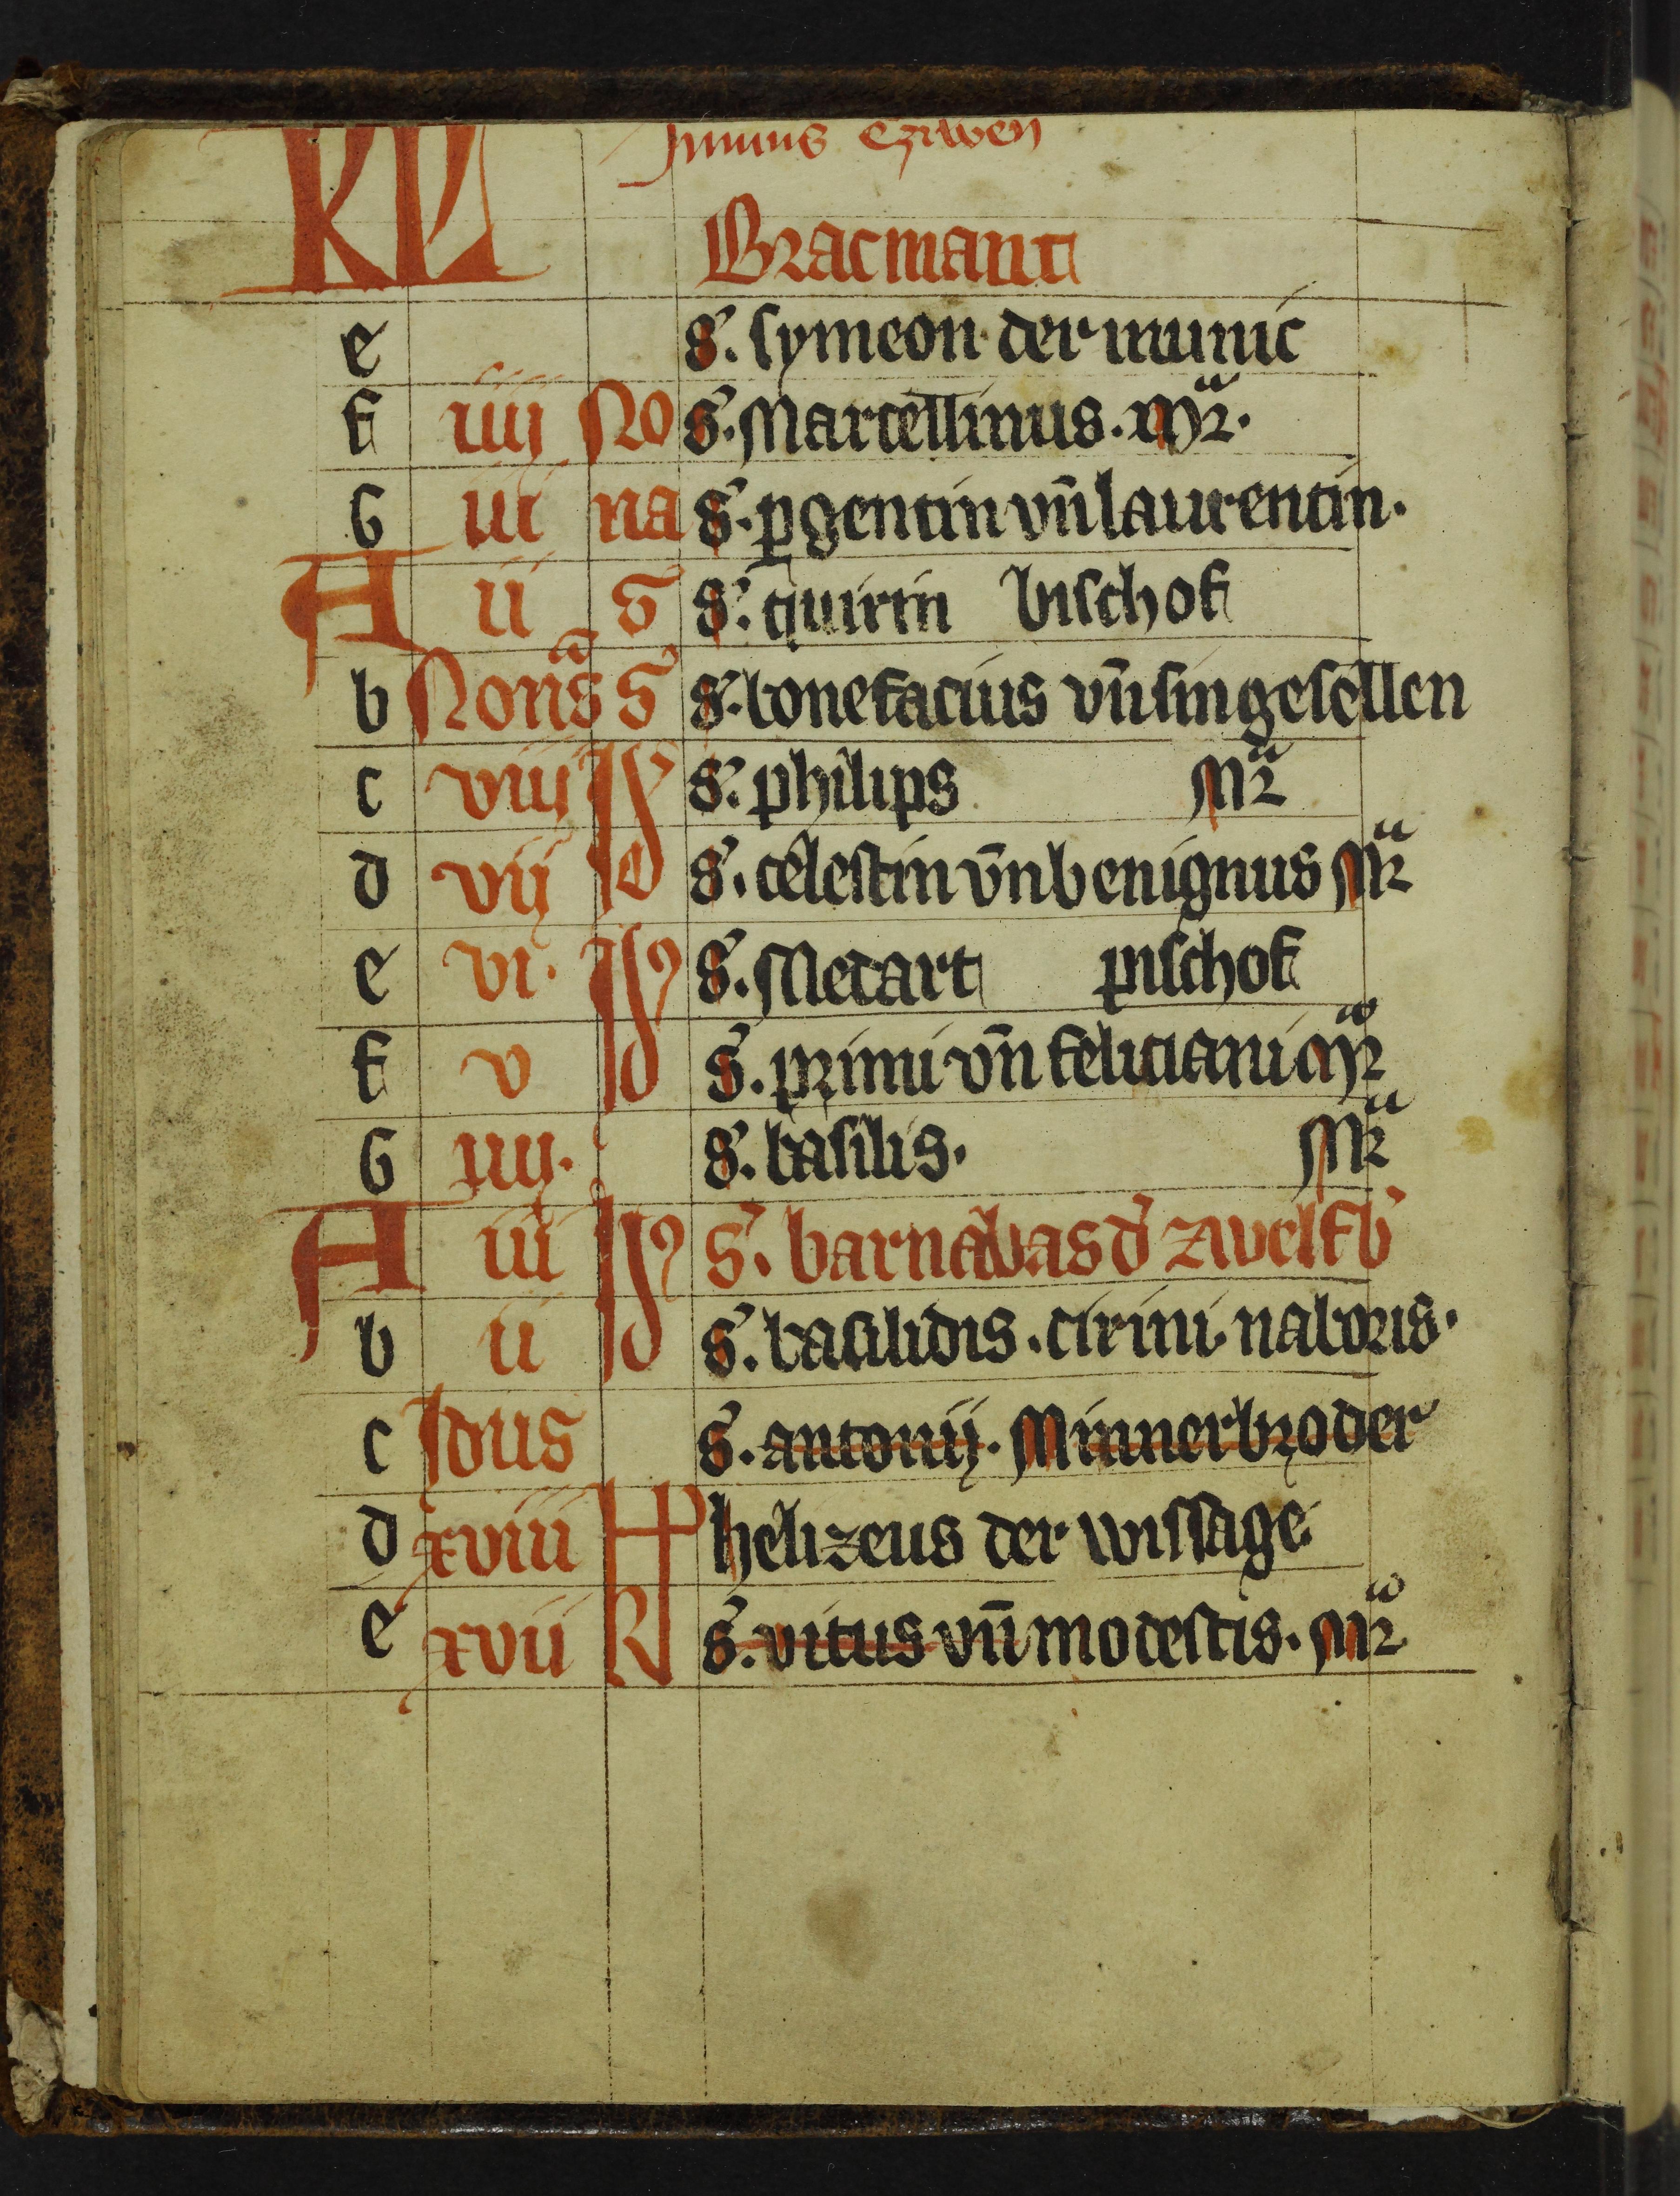 KL Junius
Bracmant
e S. symeon der munic
f iiij No S. Marcellinus. Mr̃.
G iii na S. ꝑgentin vñ laurentin.
A ii S S. quirin bischof
b Nonas S S. bonefacius vñ sin gesellen
c viiij S. philips Mr̃
d vij S. celestin vñ benignus Mr̃
e vi. S. Medart pischof
f v S. primi vñ feliciani Mr̃
G iiij. S. basilis. Mr̃
A iii S. barnabas d' zwelfb'
b ii S. basilidis. cirini. naboris.
c Idus S. antonij. Minnerbroder
d xviiii helizeus der wissage
e xvii S. vitus vñ modestis. Mr̃